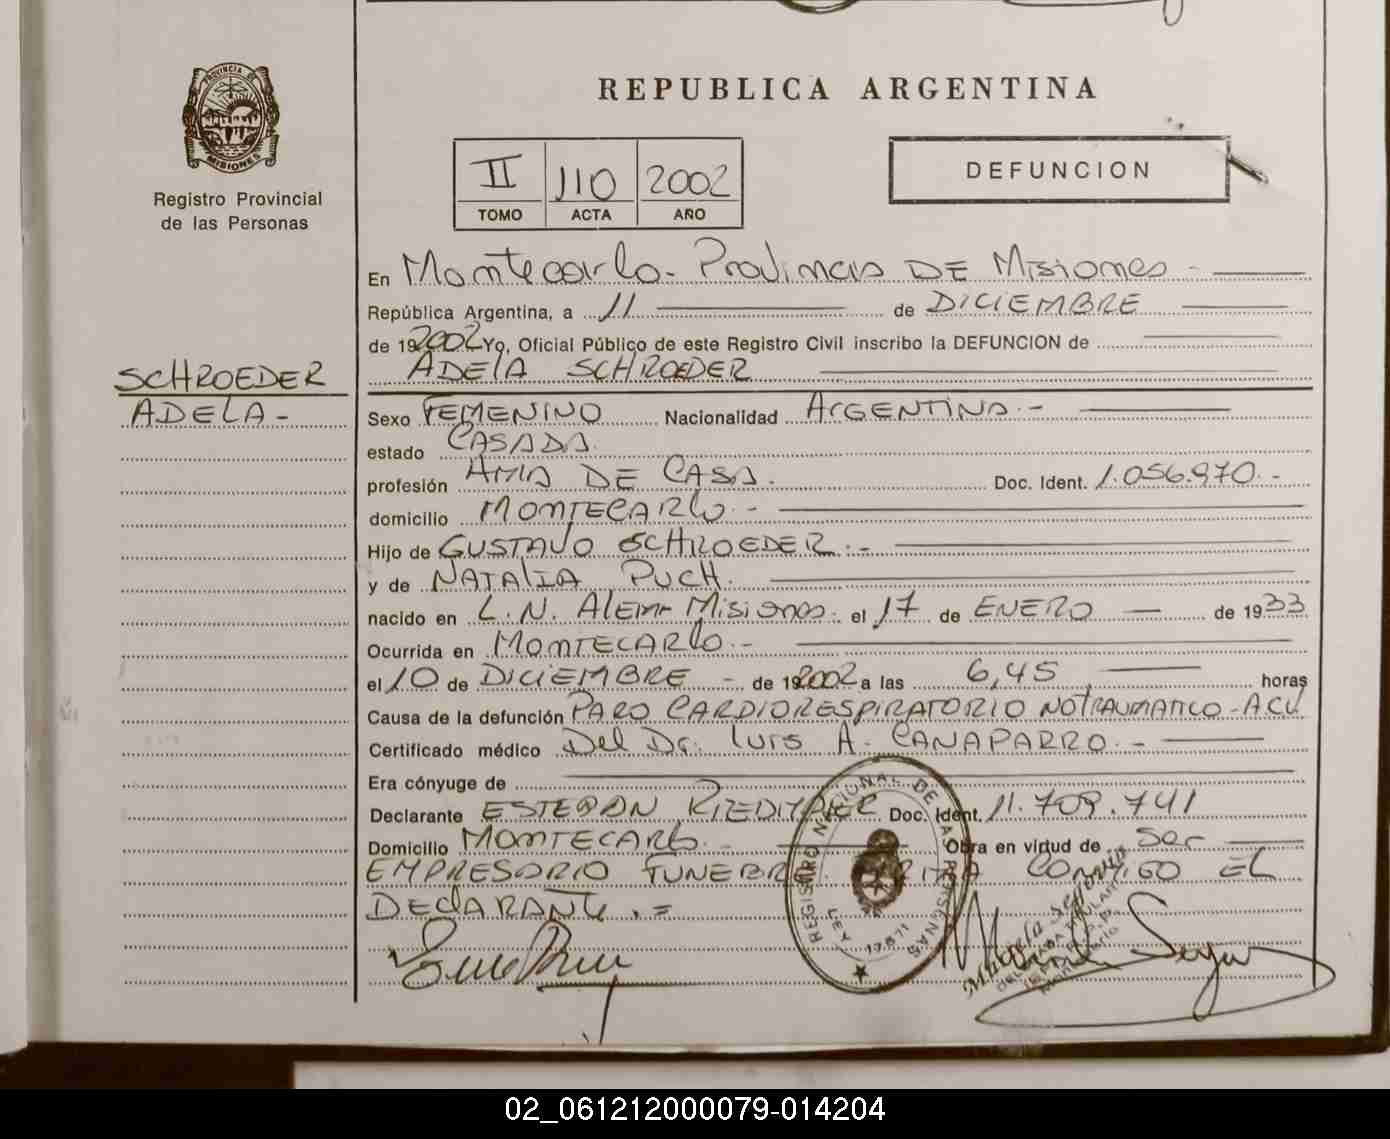 PROVINCIA DE
MISIONES
Registro Provincial
de las Personas
REPUBLICA ARGENTINA
II 110 2002
TOMO ACTA AÑO
DEFUNCION
En Montecarlo - Provincia DE Misiones -
República Argentina, a 11 de DICIEMBRE
de 192002 Yo, Oficial Público de este Registro Civil inscribo la DEFUNCION de
ADELA SCHROEDER
SCHROEDER
ADELA -
Sexo FEMENINO Nacionalidad ARGENTINA. -
estado CASADA.
profesión AMA DE CASA. Doc. Ident. 1.056.970. -
domicilio MONTECARLO. -
Hijo de GUSTAVO SCHROEDER. -
y de NATALIA PUCH.
nacido en L. N. Alem - Misiones. el 17 de ENERO de 1933
Ocurrida en MONTECARLO. -
el 10 de DICIEMBRE - de 192002 a las 6,45 horas
Causa de la defunción PARO CARDIORESPIRATORIO NO TRAUMATICO - ACV
Certificado médico Del Dr. LUIS A. CANAPARRO. -
Era cónyuge de
Declarante ESTEBAN Doc. Ident. 11.709.741
Domicilio MONTECARLO. - Obra en virtud de Ser
EMPRESARIO FUNEBRE. CONMIGO EL
DECLARANTE. =
REGISTRO NACIONAL DE LAS PERSONAS
LEY 17.671
02_061212000079-014204